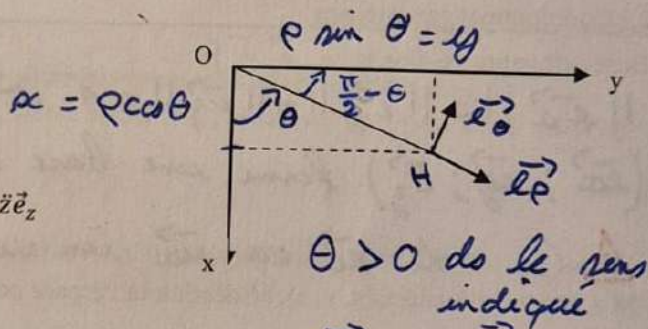 ρ sin θ = y
O
y
x = ρ cos θ
θ
π/2 - θ
e⃗_θ
H
e⃗_ρ
z̈e⃗_z
x
θ > 0 ds le sens
indiqué